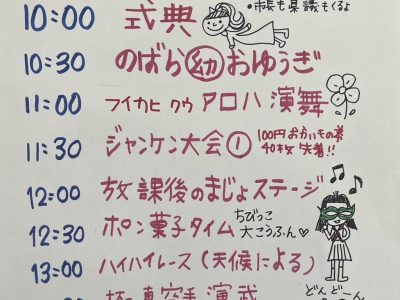 10:00 式典 •市長も県議もくるよ
10:30 のばら幼おゆうぎ
11:00 フイカヒ クウ アロハ 演舞
11:30 ジャンケン大会① 100円おかいもの券
40枚 先着!!
12:00 放課後のまじょステージ
12:30 ポン菓子タイム ちびっこ
大こうふん♡
13:00 ハイハイレース(天候による)
真空手演武
どんどーん